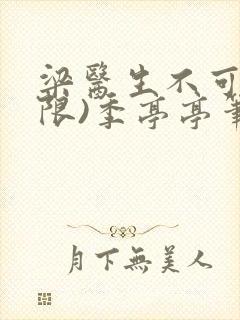 梁醫生不可
限)季亭亭
月下無美人